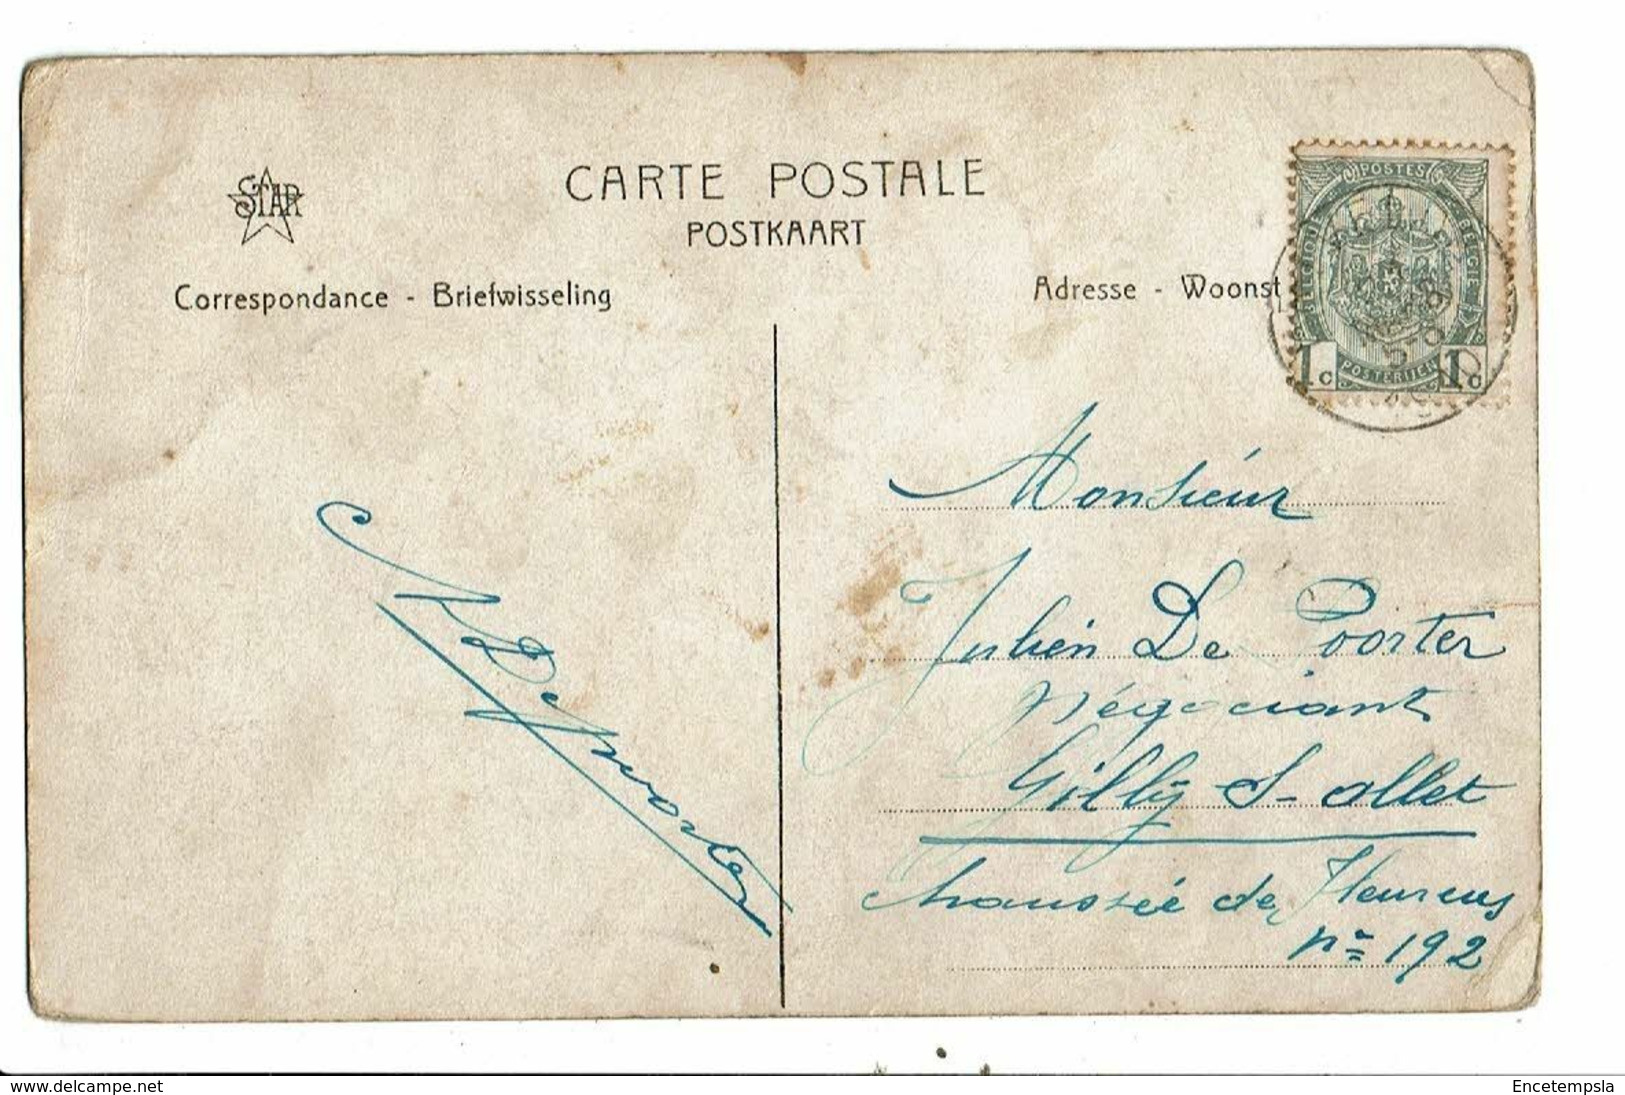 STAR
CARTE POSTALE
POSTKAART
Correspondance - Briefwisseling
Adresse - Woonst
POSTES
BELGIQUE
BELGIE
POSTERIJEN
1c 1c
Monsieur
Julien De Poorter
Négociant
Gilly S- allet
Chaussée de Fleurus
nº 192
De Poorter
www.delcampe.net
Encetempsla